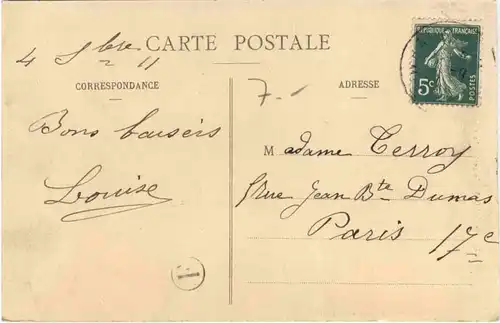 4 Sbre 11
CARTE POSTALE
CORRESPONDANCE
ADRESSE
RÉPUBLIQUE FRANÇAISE
5c
POSTES
7.-
Bons baisers
Louise
Madame Terroy
Rue Jean Bte Dumas
Paris 17e